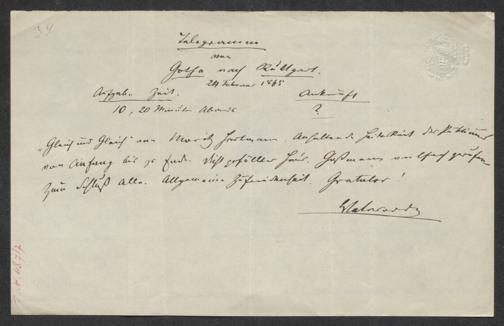 34
Telegramm
von
Gotha nach Stuttgart.
24 Februar 1865
Aufgabe Zeit. Ankunft
10, 20 Minuten Abends ?
„Gleich und Gleich“ von Moritz Hartmann Anhaltende Heiterkeit des Publicums
von Anfang bis zu Ende. Dicht gefülltes Haus. gerufen
zum Schluß Alle. Allgemeine Zufriedenheit. Gratulor!